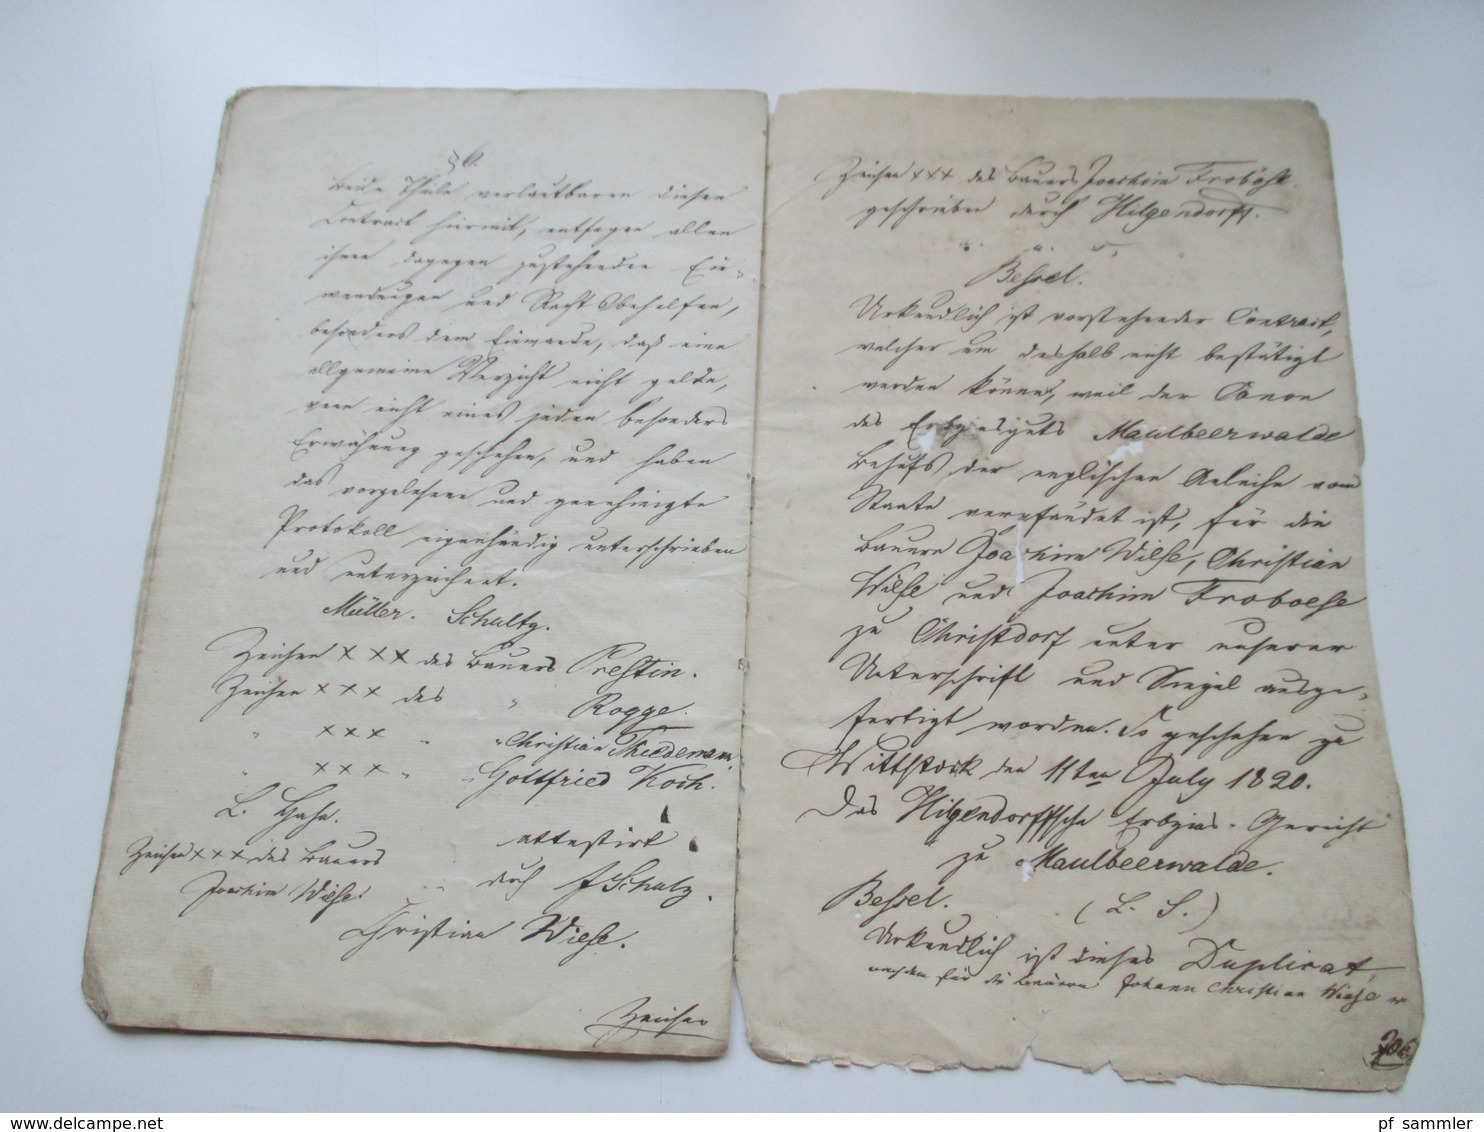 § 6.
Beide Theile verlautbaren diesen
Contract hiermit, entsagen allen
ihnen dagegen zustehenden Ein-
wendungen und Rechtsbehelfen,
besonders dem Einwande, daß eine
allgemeine Verzicht nicht gelte,
wenn nicht eines jeden besonders
Erwähnung geschehen, und haben
das vorgelesene und genehmigte
Protokoll eigenhändig unterschrieben
und unterzeichnet.
Müller. Schultz.
Zeichen XXX des Bauers Prestin.
Zeichen XXX des " Rogge.
" XXX " " Christian Thiedemann.
" XXX " " Gottfried Koch.
L. Hahn.
Zeichen XXX des Bauers attestirt
Joachim Wiese. durch J Schulz.
Christian Wiese.
Zeichen
Zeichen XXX des Bauers Joachim Froböse
geschrieben durch Hilgendorff.
a. u. s.
Bessel.
Urkundlich ist vorstehender Contract,
welcher um deshalb nicht bestätigt
werden können, weil der Canon
des Erbzinsguts Maulbeerwalde
Behufs der englischen Anleihe vom
Staate verpfändet ist, für die
Bauern Joachim Wiese, Christian
Wiese und Joachim Froboese
zu Christdorf unter unserer
Unterschrift und Siegel ausge-
fertigt worden. So geschehen zu
Wittstock den 11ten July 1820.
Das Hilgendorffsche Erbzins-Gericht
zu Maulbeerwalde.
Bessel. (L. S.)
Urkundlich ist dieses Duplicat,
nachdem für die Bauern Johann Christian Wiese
pf_sammler